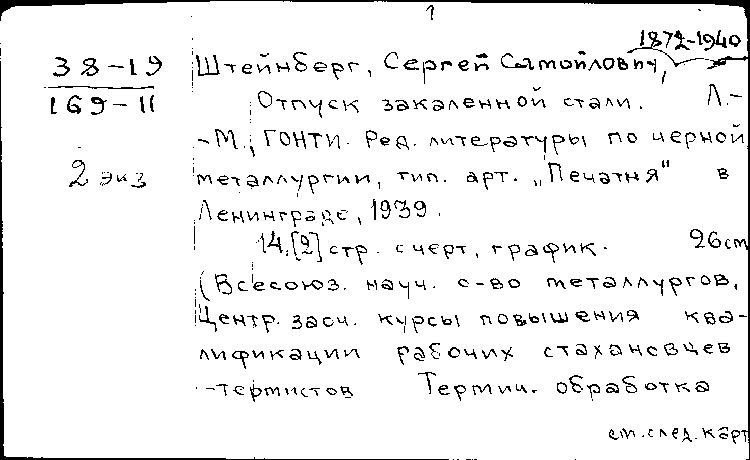 1
1872-1940
38-19
169-11
2 экз
Штейнберг, Сергей Самойлович,
Отпуск закаленной стали. Л.-
-М., ГОНТИ. Ред. литературы по черной
металлургии, тип. арт. „Печатня" в
Ленинграде, 1939.
14,[2] стр. с черт, график. 26cm
(Всесоюз. науч. о-во металлургов.
Центр. заоч. курсы повышения ква-
лификации рабочих стахановцев
-термистов Термич. обработка
см. след. карт